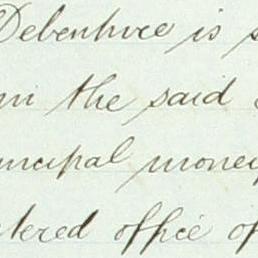 Debenture is s
m the said
ncipal money
tered office of